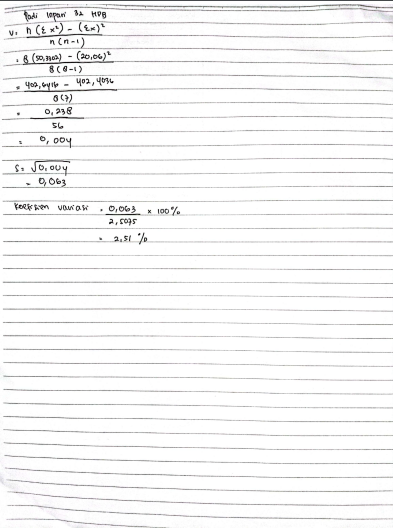 Padi lapan 32 HPB
V = n (Σx²) - (Σx)²
n (n-1)
= 8 (50,3302) - (20,06)²
8 (8-1)
= 402,6416 - 402,4036
8 (7)
= 0,238
56
= 0,004
S = √0,004
= 0,063
Koefisien variasi = 0,063 x 100%
2,5075
= 2,51 %